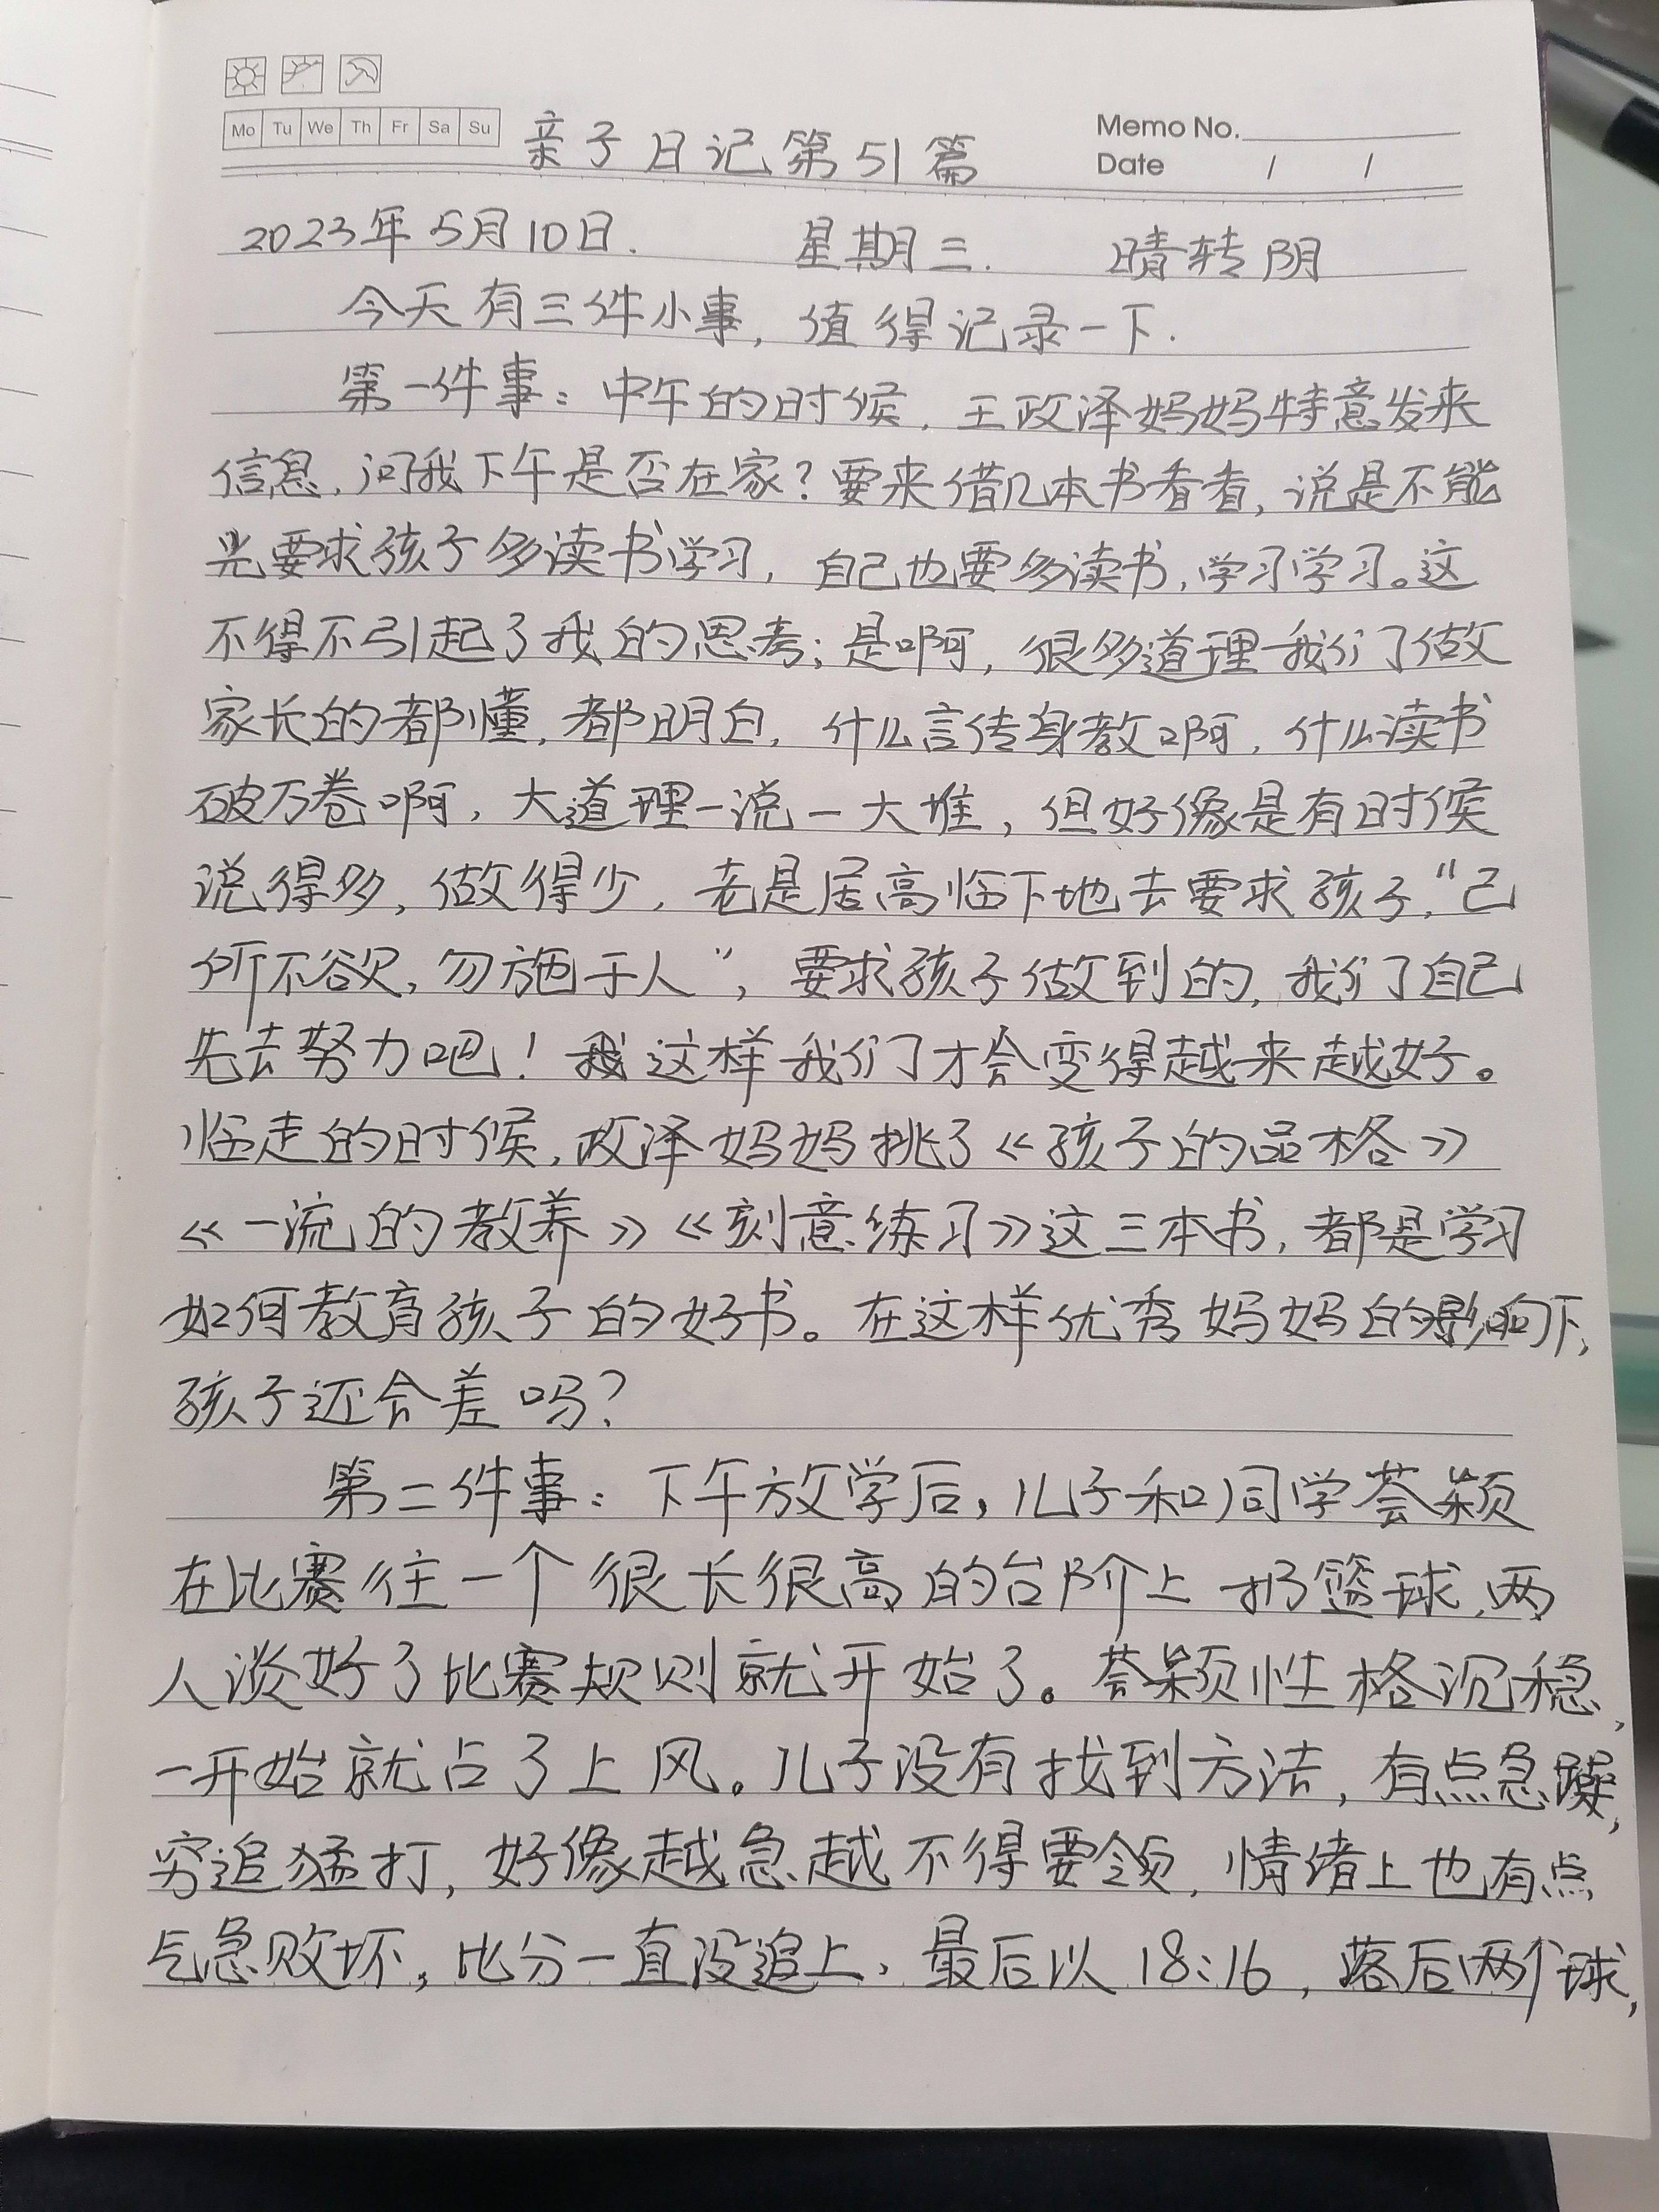 Mo Tu We Th Fr Sa Su
亲子日记第51篇
Memo No.
Date / /
2023年5月10日. 星期三. 晴转阴
今天有三件小事，值得记录一下.
第一件事：中午的时候，王政泽妈妈特意发来
信息，问我下午是否在家？要来借几本书看看，说是不能
光要求孩子多读书学习，自己也要多读书，学习学习。这
不得不引起了我的思考；是啊，很多道理我们做
家长的都懂，都明白，什么言传身教啊，什么读书
破万卷啊，大道理一说一大堆，但好像是有时候
说得多，做得少，老是居高临下地去要求孩子，“己
所不欲，勿施于人”，要求孩子做到的，我们自己
先去努力吧！这样我们才会变得越来越好。
临走的时候，政泽妈妈挑了《孩子的品格》
《一流的教养》《刻意练习》这三本书，都是学习
如何教育孩子的好书。在这样优秀妈妈的影响下，
孩子还会差吗？
第二件事：下午放学后，儿子和同学荟颖
在比赛往一个很长很高的台阶上扔篮球，两
人谈好了比赛规则就开始了。荟颖性格沉稳，
一开始就占了上风。儿子没有找到方法，有点急躁，
穷追猛打，好像越急越不得要领，情绪上也有点
气急败坏，比分一直没追上，最后以18:16，落后两个球，